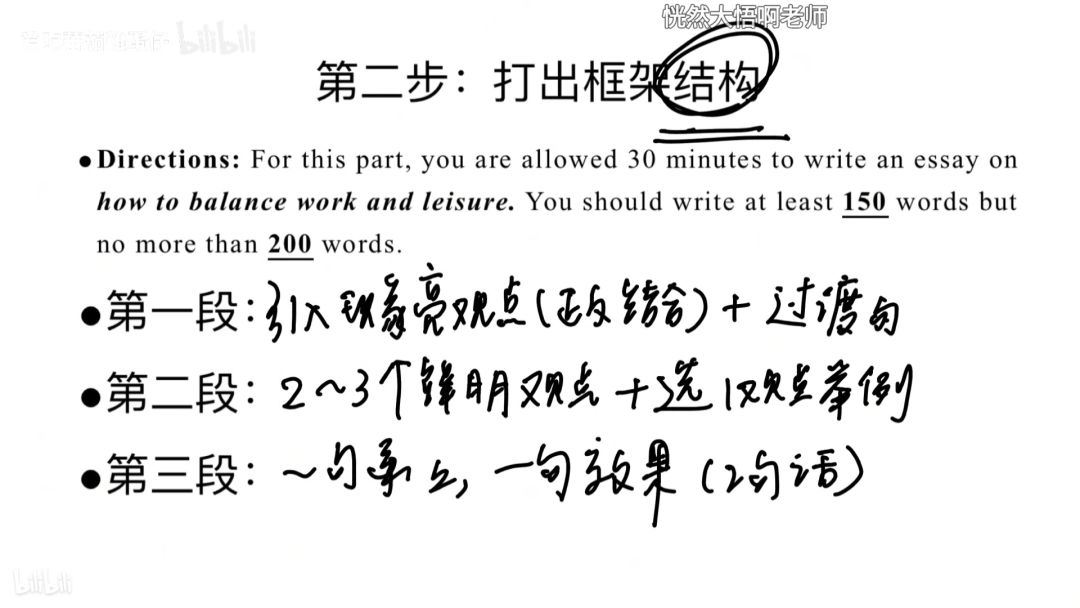 恍然大悟啊老师
bilibili
第二步：打出框架结构
●Directions: For this part, you are allowed 30 minutes to write an essay on
how to balance work and leisure. You should write at least 150 words but
no more than 200 words.
●第一段：引入现象亮观点(正反结合)+过渡句
●第二段：2~3个鲜明观点+选1观点举例
●第三段：一句承上，一句效果(2句话)
bilibili